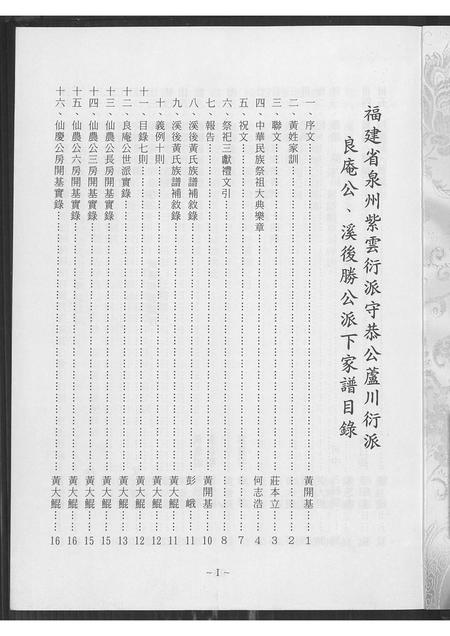 福建省泉州紫雲衍派守恭公蘆川衍派
良庵公、溪後勝公派下家譜目錄
一、序文……黃開基…1
二、黃姓家訓……2
三、聯文……莊本立…3
四、中華民族祭祖大典樂章……何志浩…4
五、祝文……7
六、祭祀三獻禮文引……8
七、報告……黃開基…10
八、溪後黃氏族譜補敘錄……彭　峨…11
九、溪後黃氏族譜補敘錄……黃大鯤…11
十、義例十則……黃大鯤…12
十一、目錄七則……黃大鯤…12
十二、良庵公世派實錄……黃大鯤…13
十三、仙農公長房開基實錄……黃大鯤…15
十四、仙農公三房開基實錄……黃大鯤…15
十五、仙農公六房開基實錄……黃大鯤…16
十六、仙慶公房開基實錄……黃大鯤…16
~I~